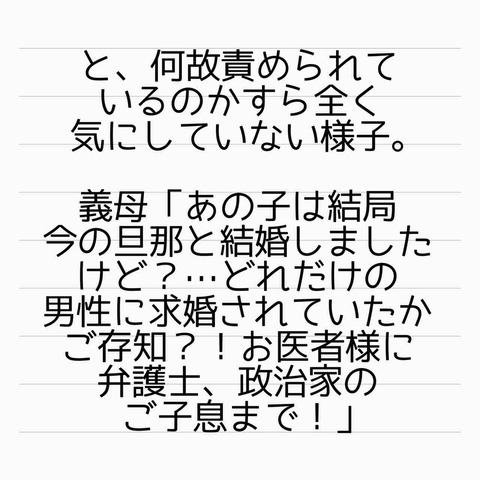 と、何故責められて
いるのかすら全く
気にしていない様子。
義母「あの子は結局
今の旦那と結婚しました
けど？…どれだけの
男性に求婚されていたか
ご存知？！お医者様に
弁護士、政治家の
ご子息まで！」